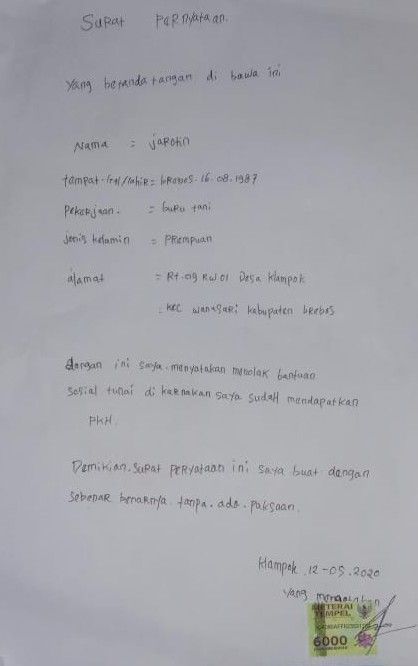 Surat Parnyataan.
yang beranda tangan di bawa ini
Nama : jarotin
tampat-tgl/lahir = brebes. 16.08.1987
Pekerjaan. = buru tani
jenis kelamin = Prempuan
alamat = Rt.09 RW.01 Desa Klampok
= Kec wanasari kabupaten brebes
dengan ini saya menyatakan menolak bantuan
sosial tunai di karnakan saya sudah mendapatkan
PKH.
Demikian surat peryataan ini saya buat dengan
sebenar benarnya. tanpa. ada. paksaan.
Klampok, 12-05.2020
yang
METERAI
TEMPEL
6000